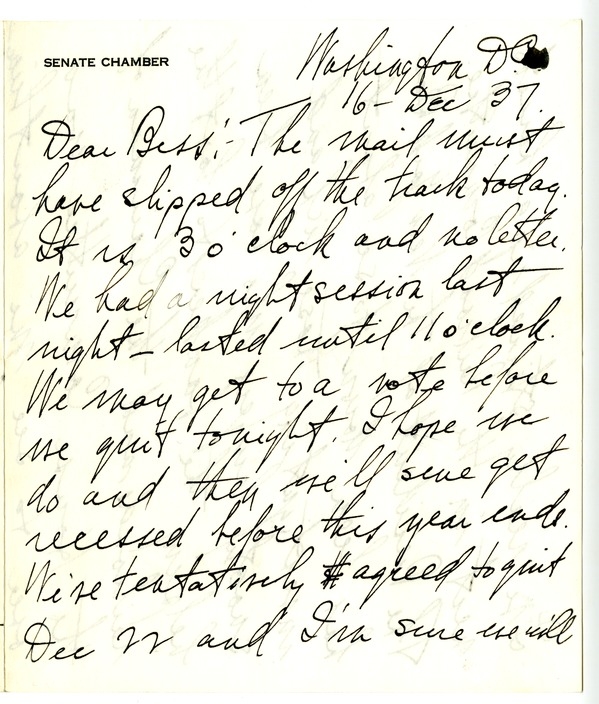 SENATE CHAMBER
Washington D.C.
16 - Dec 37.
Dear Bess:- The mail must
have slipped off the track today.
It is 3 o'clock and no letter.
We had a night session last
night - lasted until 11 o'clock.
We may get to a vote before
we quit tonight. I hope we
do and then we'll sure get
recessed before this year ends.
We've tentatively agreed to quit
Dec 22 and I'm sure we will